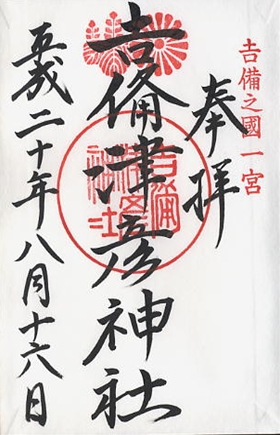 吉備之國一宮
奉拝
吉備津彦神社
平成二十年八月十六日